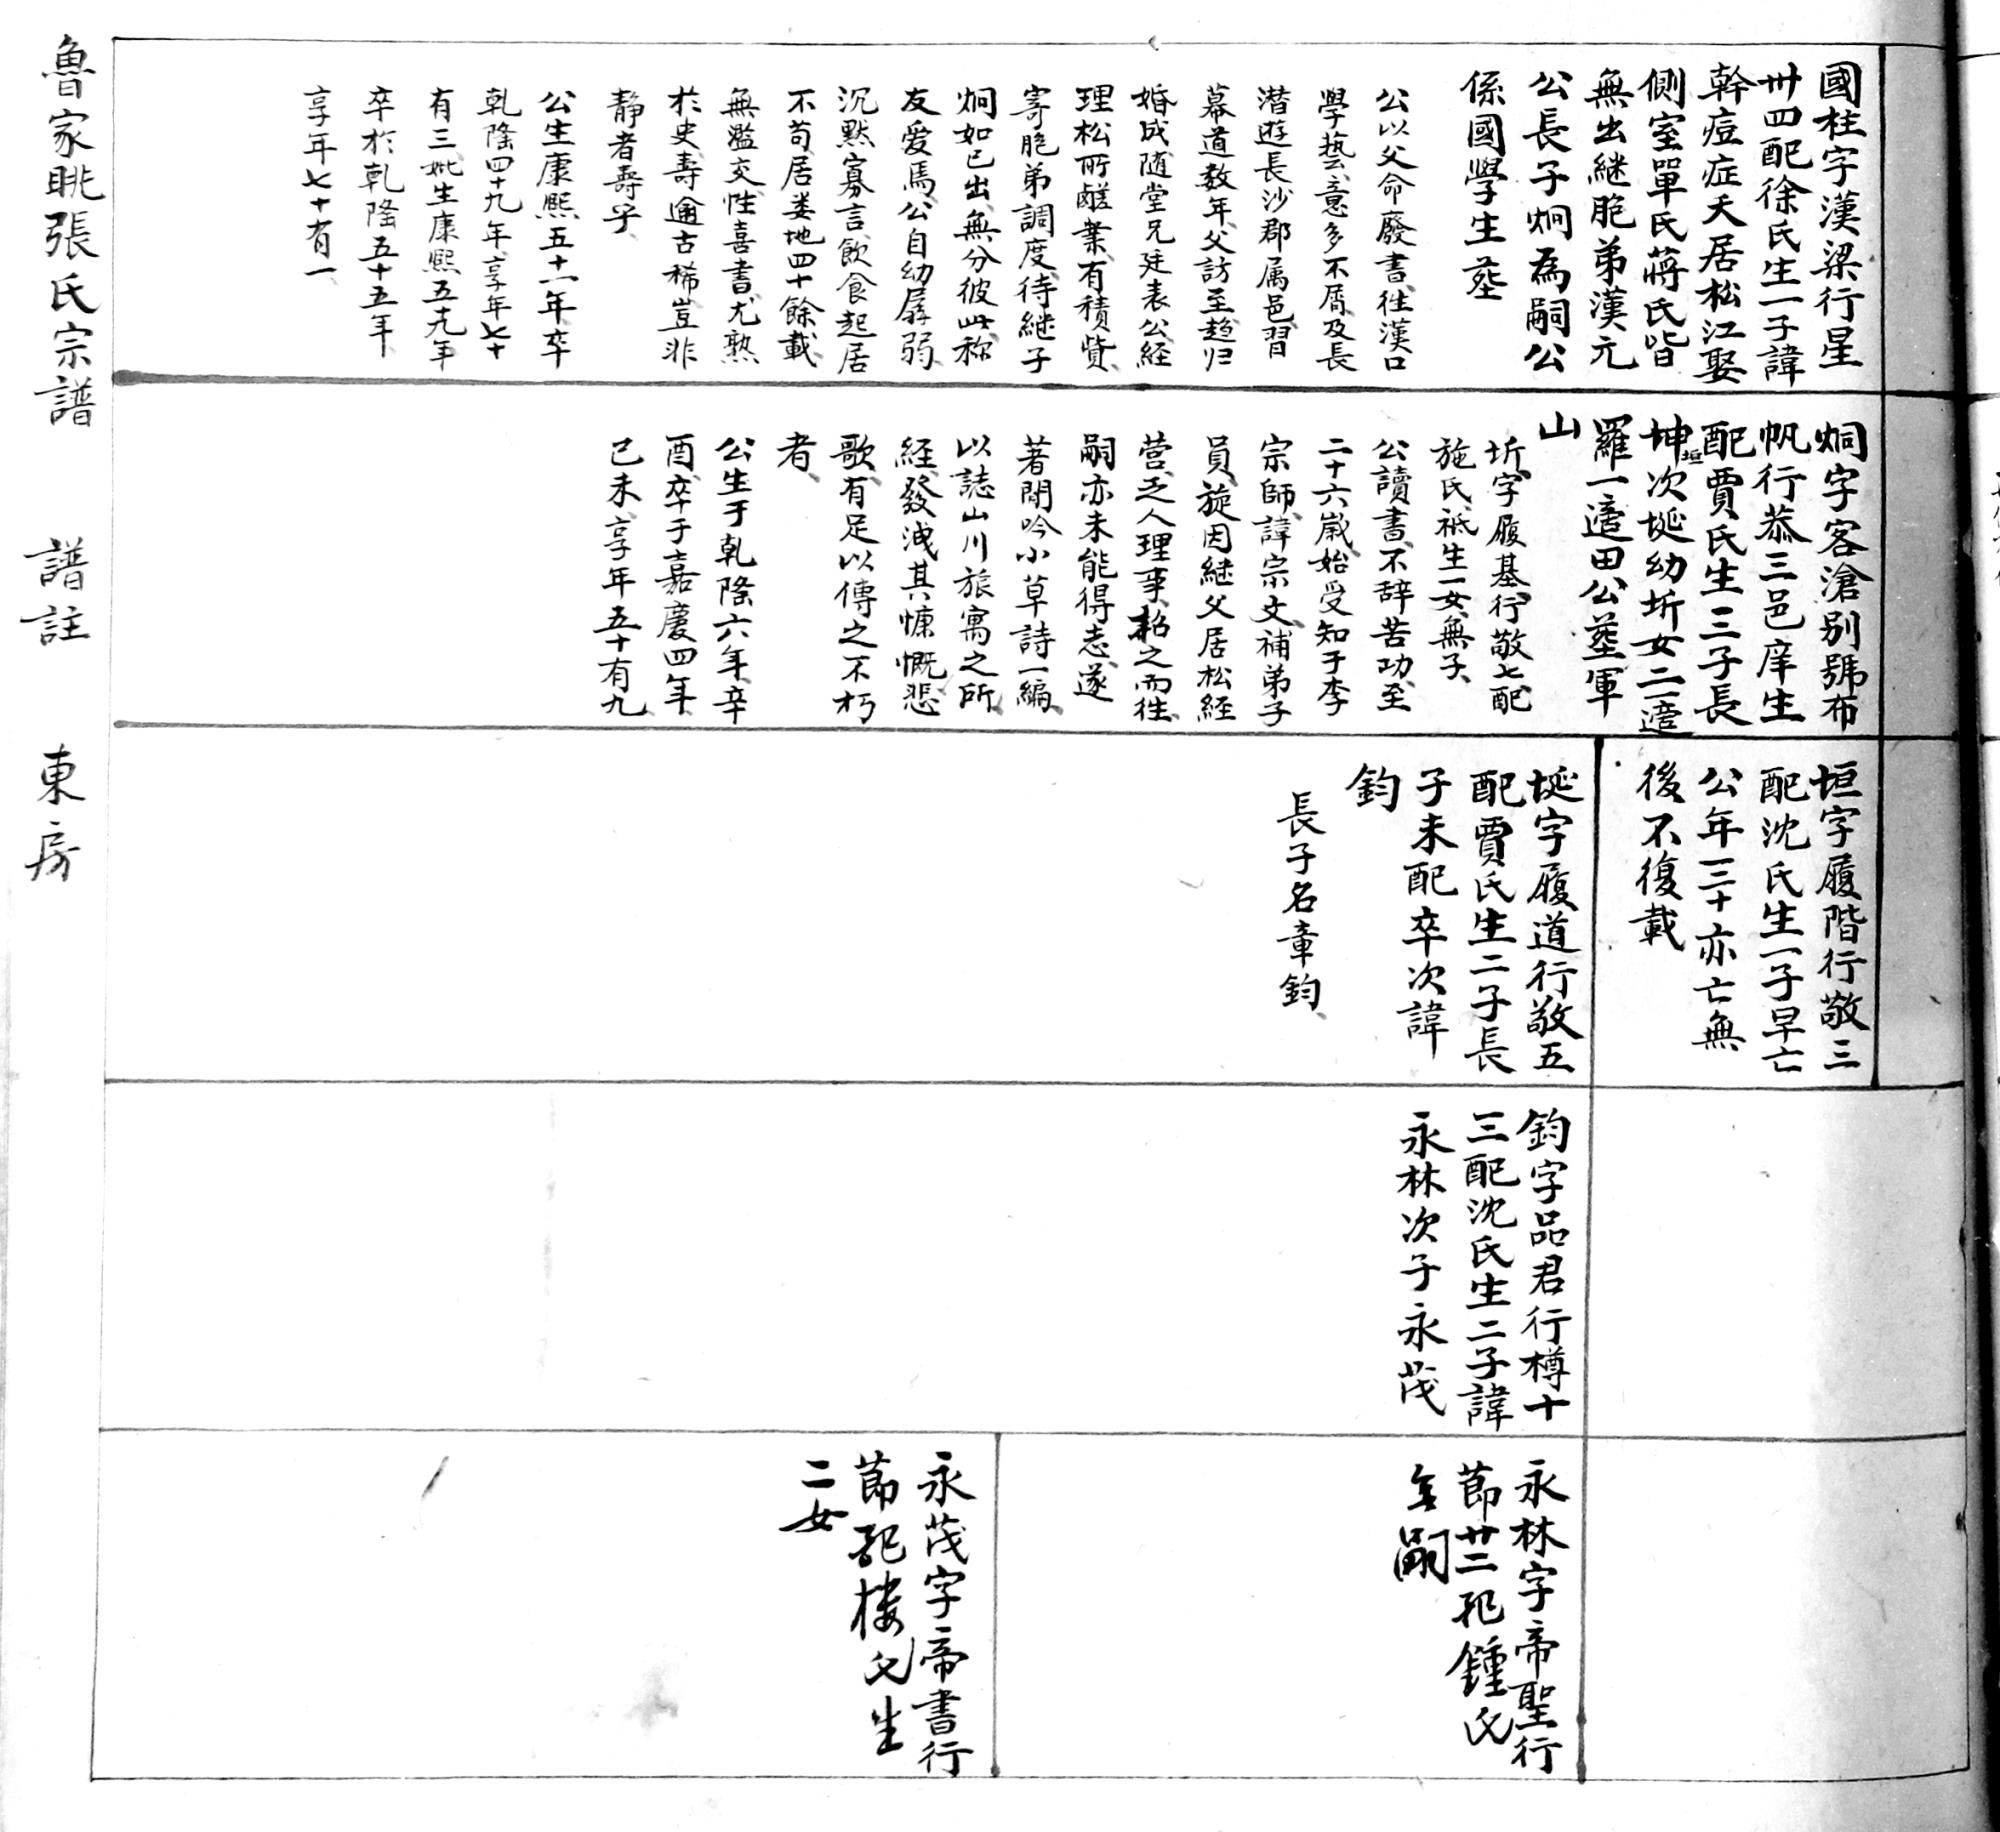 國柱字漢梁行星
卅四配徐氏生一子諱
幹痘症夭居松江娶
側室單氏蔣氏皆
無出継胞弟漢元
公長子炯為嗣公
係國學生葬
公以父命廢書往漢口
學藝意多不屑及長
潜遊長沙郡属邑習
幕道数年父訪至趋归
婚成随堂兄廷表公経
理松所鹺業有積貲
寄胞弟調度待継子
炯如已出無分彼此称
友爱焉公自幼孱弱
沉默寡言飲食起居
不苟居娄地四十餘載
無濫交性喜書尤熟
於史壽逾古稀豈非
静者壽乎
公生康熙五十一年卒
乾隆四十九年享年七十
有三妣生康熙五十九年
卒於乾隆五十五年
享年七十有一
炯字客滄别號布
帆行恭三邑庠生
配賈氏生三子長
坤垣次埏幼圻女二適
羅一適田公葬軍
山
圻字履基行敬七配
施氏祇生一女無子
公讀書不辞苦功至
二十六歲始受知于李
宗師諱宗文補弟子
員旋因継父居松経
营乏人理事招之而往
嗣亦未能得志遂
著閒吟小草詩一編
以誌山川旅寓之所
経發洩其慷慨悲
歌有足以傳之不朽
者
公生于乾隆六年辛
酉卒于嘉慶四年
已未享年五十有九
垣字履階行敬三
配沈氏生一子早亡
公年三十亦亡無
後不復載
埏字履道行敬五
配賈氏生二子長
子未配卒次諱
鈞
長子名章鈞
鈞字品君行樽十
三配沈氏生二子諱
永林次子永茂
永林字帝聖行
節廿二配鍾氏
無嗣
永茂字帝書行
節配楼氏生
二女
魯家眺張氏宗譜
譜註
東房